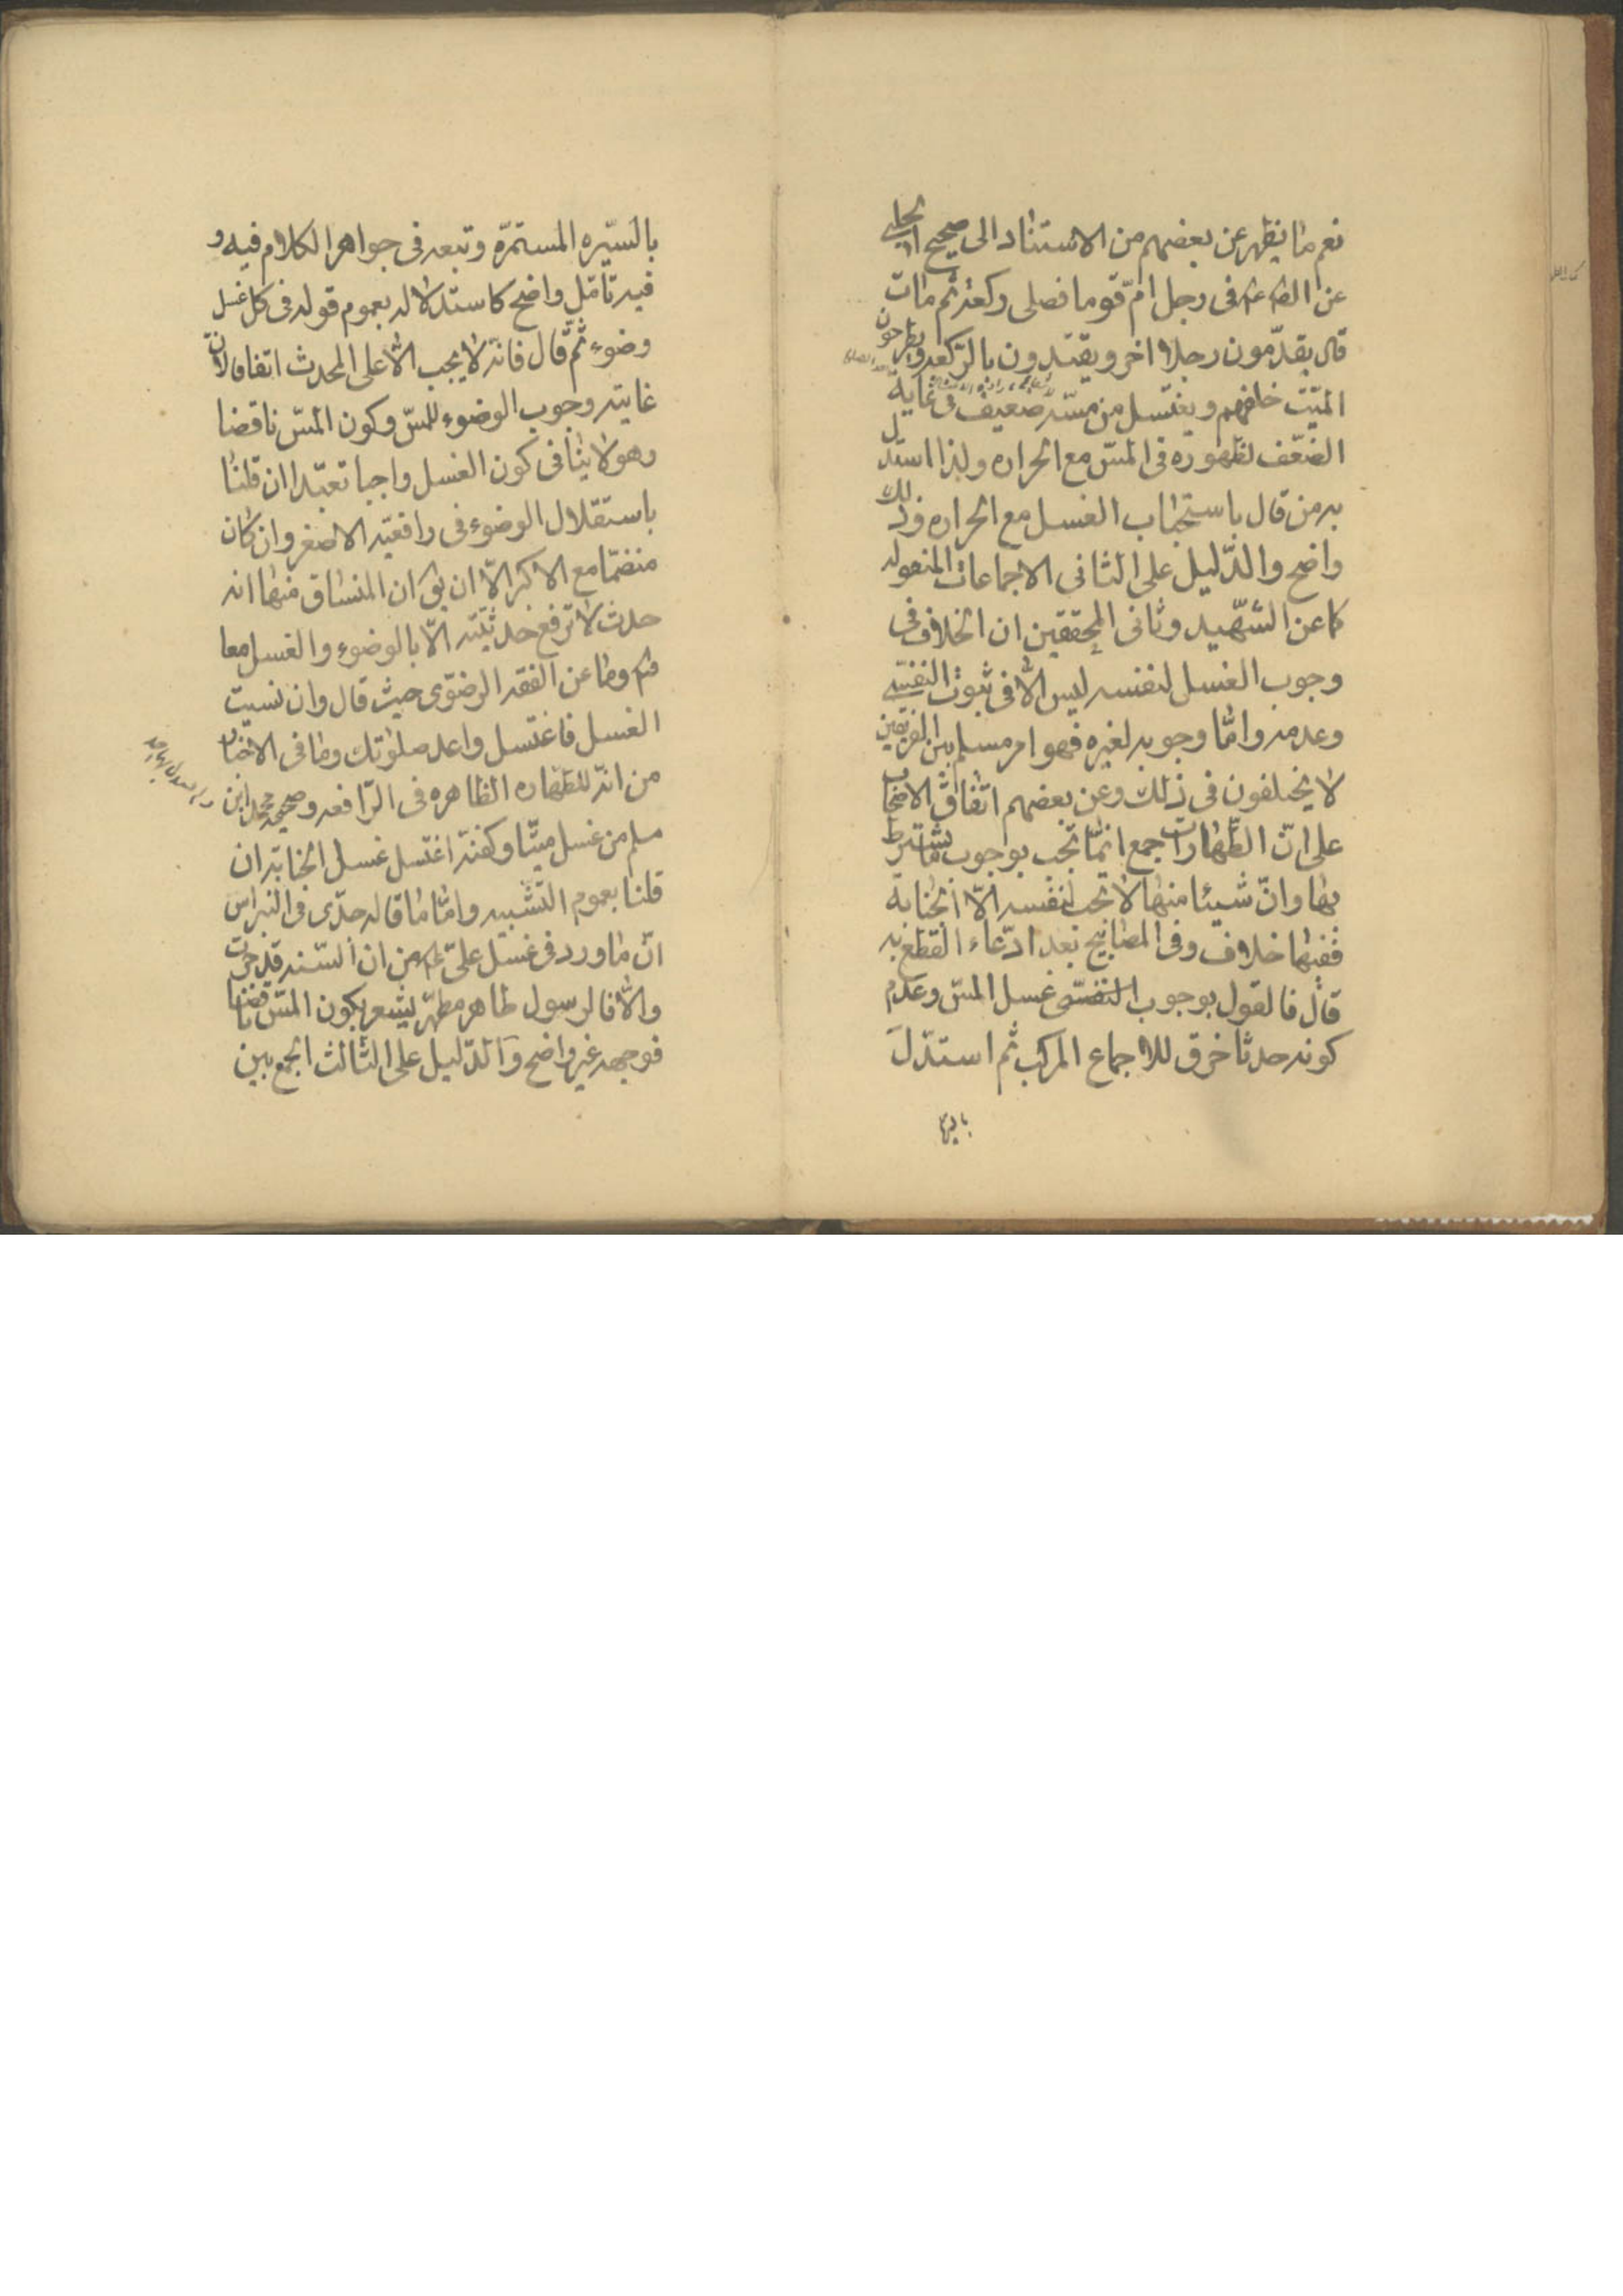 نعم ما يظهر عن بعضهم من الاستناد الى صحيح الحلبي
عن الصم عم فى رجل امّ قوما فصلى ركعة ثم مات
قال يقدّمون رجلا اخر ويعتدون بالركعة ويطرحون
الميّت خلفهم ويغتسل من مسّه ضعيف فى غاية
الضّعف لظهوره فى المسّ مع الحراره ولذا استدل
به من قال باستحباب الغسل مع الحراره وذلك
واضح والدّليل على الثانى الاجماعات المنقوله
كما عن الشّهيد وثانى المحققين ان الخلاف فى
وجوب الغسل لنفسه ليس الّا فى ثبوت النفسيّه
وعدمه وامّا وجوبه لغيره فهو امر مسلم بين الفريقين
لا يختلفون فى ذلك وعن بعضهم اتفاق الاصحاب
على انّ الطّهارات اجمع انّما تجب بوجوب ما يشترط
بها وانّ شيئا منها لا تجب لنفسه الّا الجنابة
ففيها خلاف وفى المصابيح بعد ادّعاء القطع به
قال فالقول بوجوب النفسى غسل المسّ وعدم
كونه حدثا خرق للاجماع المركب ثم استدلّ
بالسّيره المستمرّه وتبعه فى جواهر الكلام فيه و
فيه تامّل واضح كاستدلاله بعموم قوله فى كل غسل
وضوء ثمّ قال فانّه لا يجب الّا على المحدث اتفاقا لانّ
غايته وجوب الوضوء للمسّ وكون المسّ ناقضا
وهو لا ينافى كون الغسل واجبا تعبّدا ان قلنا
باستقلال الوضوء فى رافعيّه الاصغر وان كان
منضمّا مع الاكبر الّا ان يق ان المنساق منها انه
حدث لا ترفع حدثيّته الّا بالوضوء والغسل معا
فتم وما عن الفقه الرضوّى حيث قال وان نسيت
الغسل فاغتسل واعد صلوتك وما فى الاخبار
من انّه للطّهاره الظاهره فى الرّافعه وصحيحه محمد ابن
مسلم من غسل ميّتا وكفنه اغتسل غسل الجنابة ان
قلنا بعموم التّشبيه وامّا ما قاله جدّى فى النبراس
انّ ما ورد فى غسل علىّ عم من ان السّنه قد جرت
والّا فالرسول طاهر مطهّر يشعر بكون المسّ ناقضا
فوجهه غير واضح والدّليل على الثّالث الجمع بين